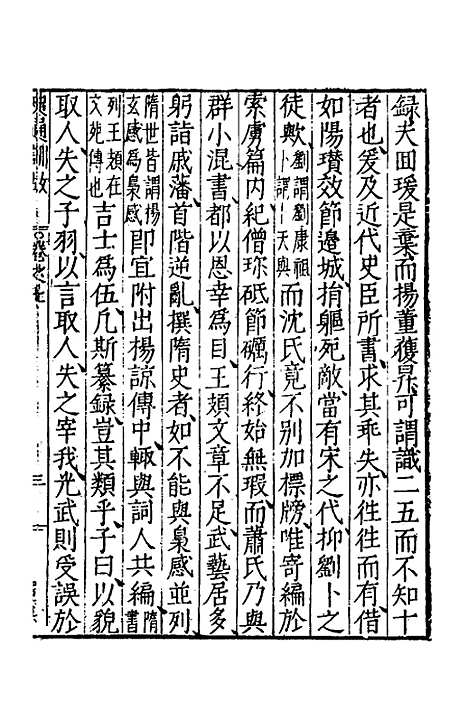 録夫回瑗足棄而揚董獲昇可謂識二五而不知十
者也爰及近代史臣所書求其乖失亦徃徃而有借
如陽瓚效節邊城捐軀死敵當有宋之代抑劉卜之
徒歟劉謂劉康祖卜謂卜天與而沈氏竟不別加標牓唯寄編於
索虜篇内紀僧珎砥節礪行終始無瑕而蕭氏乃與
群小混書都以恩幸為目王頍文章不足武藝居多
躬詣戚藩首階逆亂撰隋史者如不能與梟感並列
隋世皆謂楊玄感為梟感即宜附出楊諒傳中輙與詞人共編隋書
列王頍在文苑傳也吉士為伍凡斯纂録豈其類乎子曰以貌
取人失之子羽以言取人失之宰我光武則受誤於